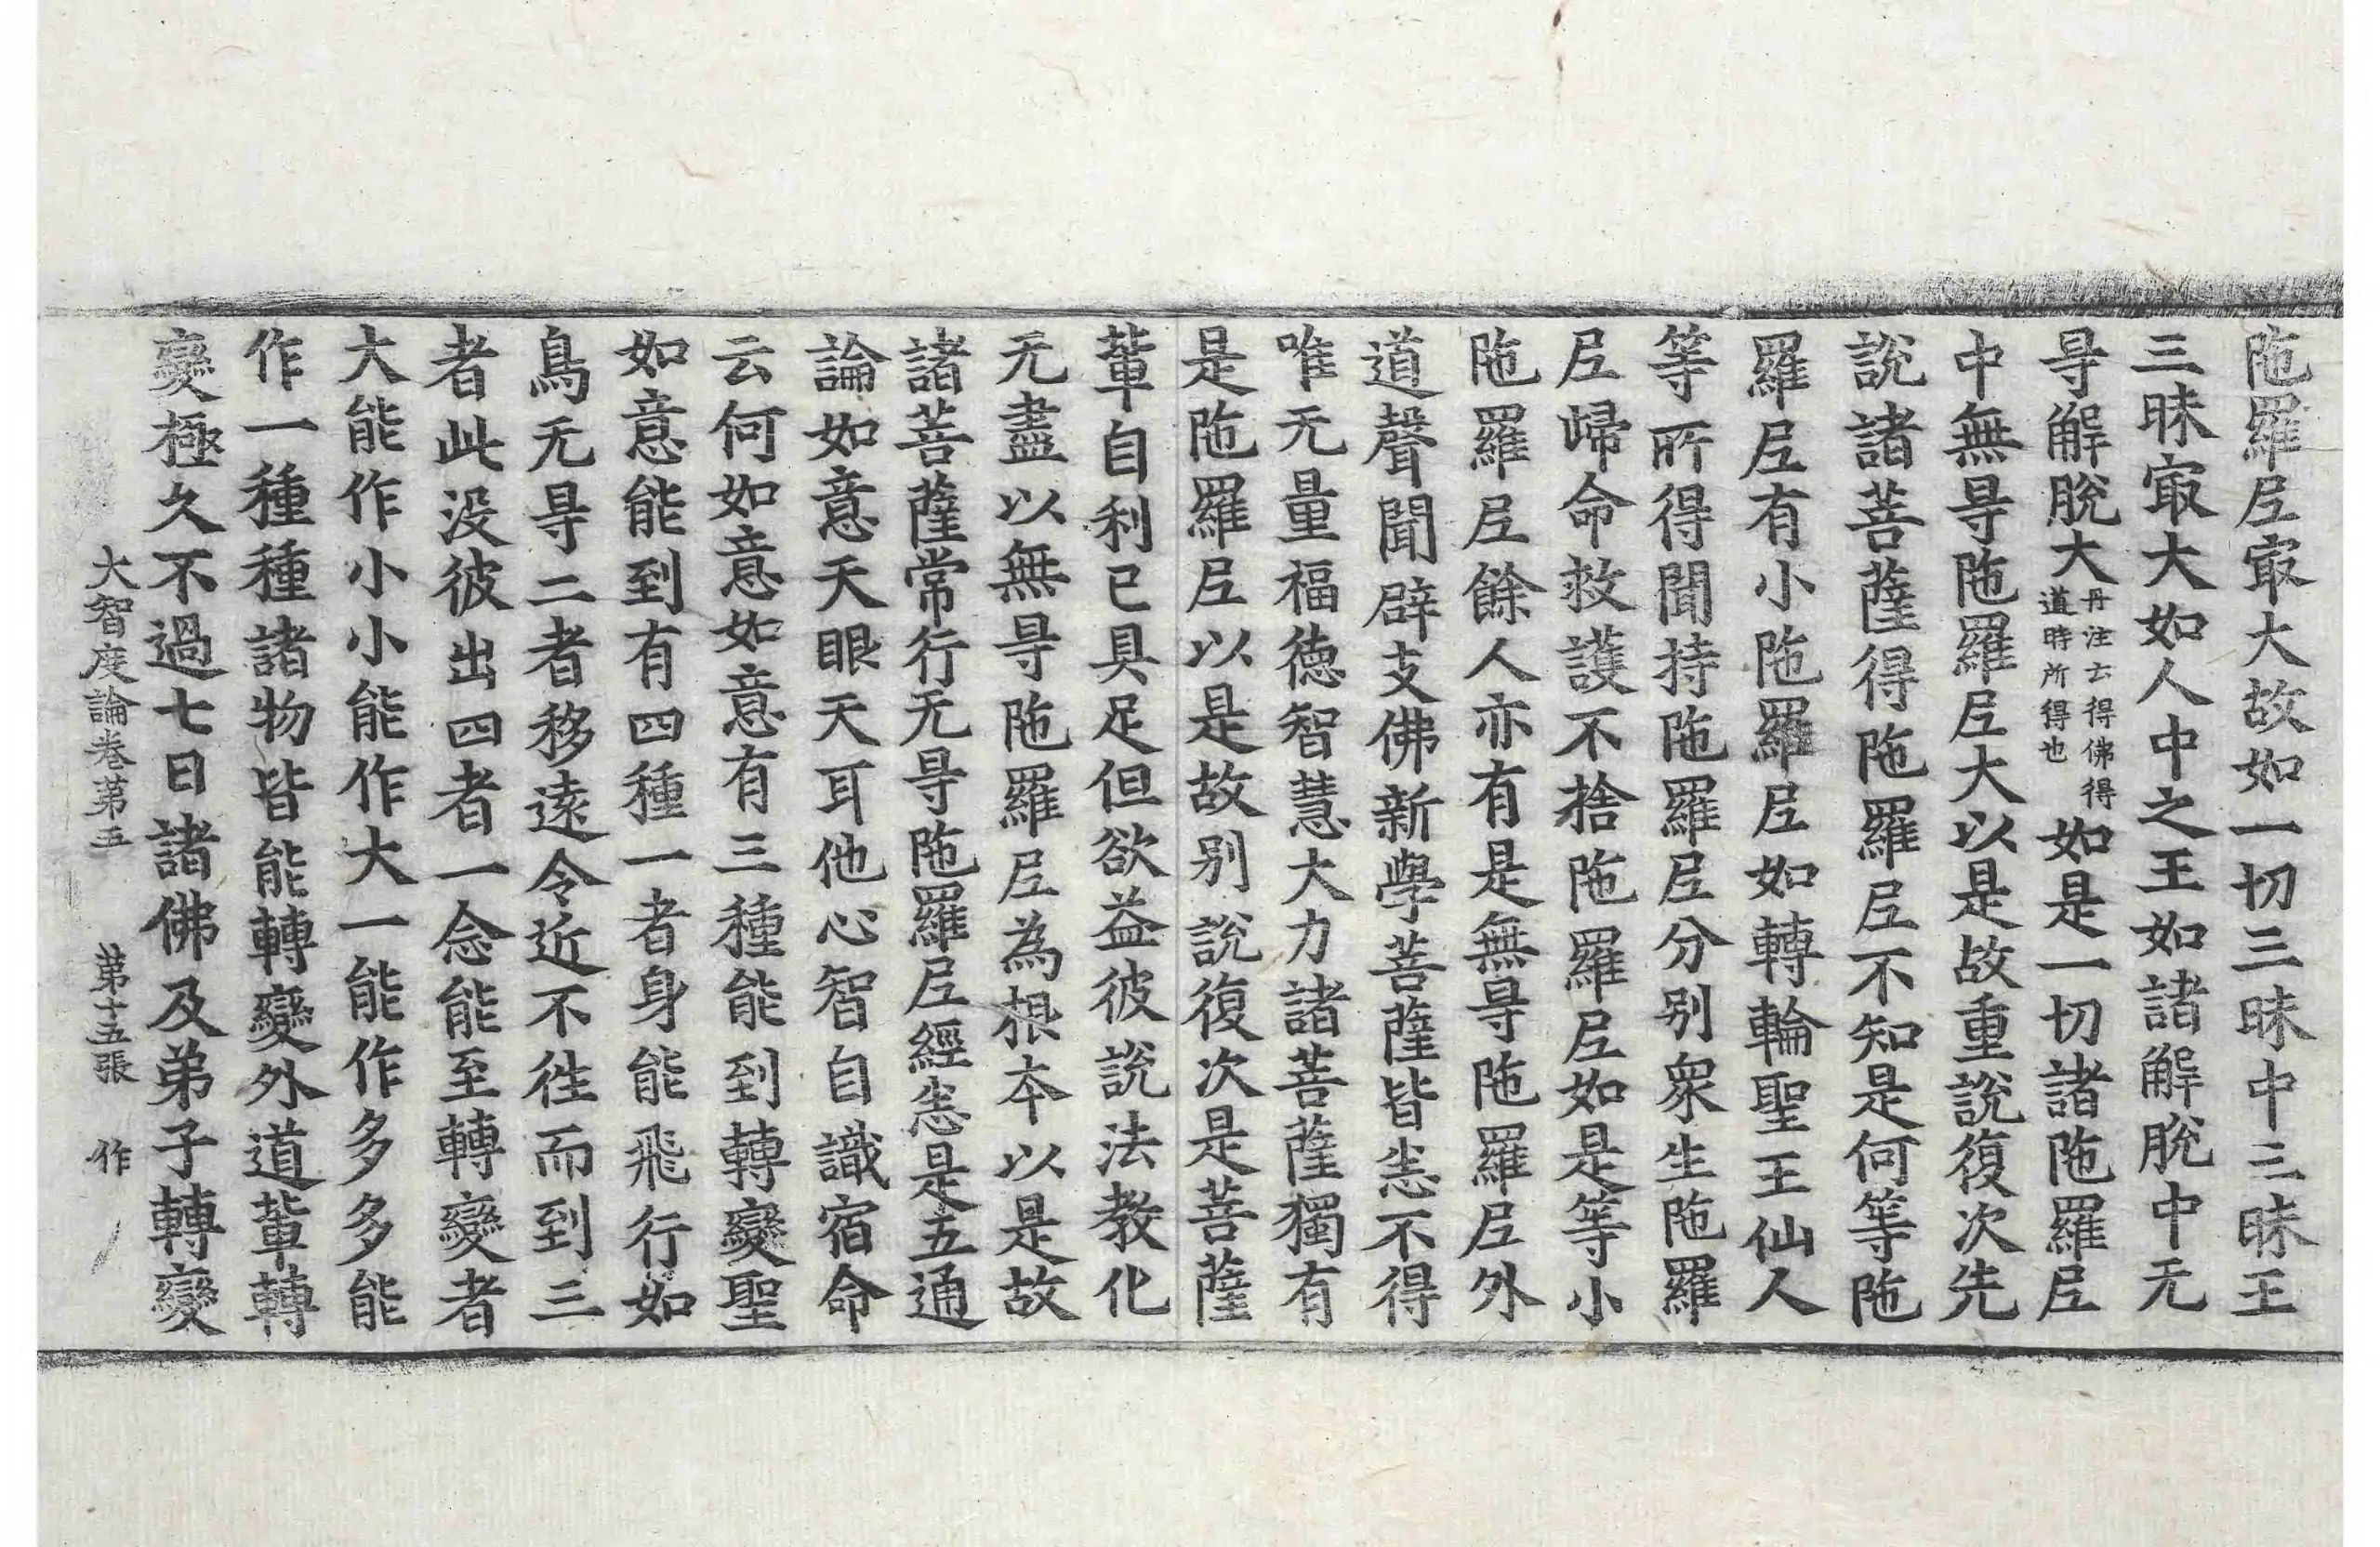 陁羅𡰱㝡大故如一切三昧中三昧王
三昧㝡大如人中之王如諸解脫中无
㝵解脫大丹注云得佛得道時所得也如是一切諸陁羅𡰱
中無㝵陁羅𡰱大以是故重說復次先
說諸菩薩得陁羅𡰱不知是何等陁
羅𡰱有小陁羅𡰱如轉輪聖王仙人
等所得聞持陁羅𡰱分別衆生陁羅
𡰱歸命救護不捨陁羅𡰱如是等小
陁羅𡰱餘人亦有是無㝵陁羅𡰱外
道聲聞辟支佛新學菩薩皆悉不得
唯无量福德智慧大力諸菩薩獨有
是陁羅𡰱以是故別說復次是菩薩
軰自利已具足但欲益彼說法教化
无盡以無㝵陁羅𡰱為根本以是故
諸菩薩常行无㝵陁羅𡰱經悉是五通
論如意天眼天耳他心智自識宿命
云何如意如意有三種能到轉變聖
如意能到有四種一者身能飛行如
鳥无㝵二者移遠令近不徃而到三
者此没彼出四者一念能至轉變者
大能作小小能作大一能作多多能
作一種種諸物皆能轉變外道軰轉
變極久不過七日諸佛及弟子轉變
大智度論卷苐五 苐十五張 作